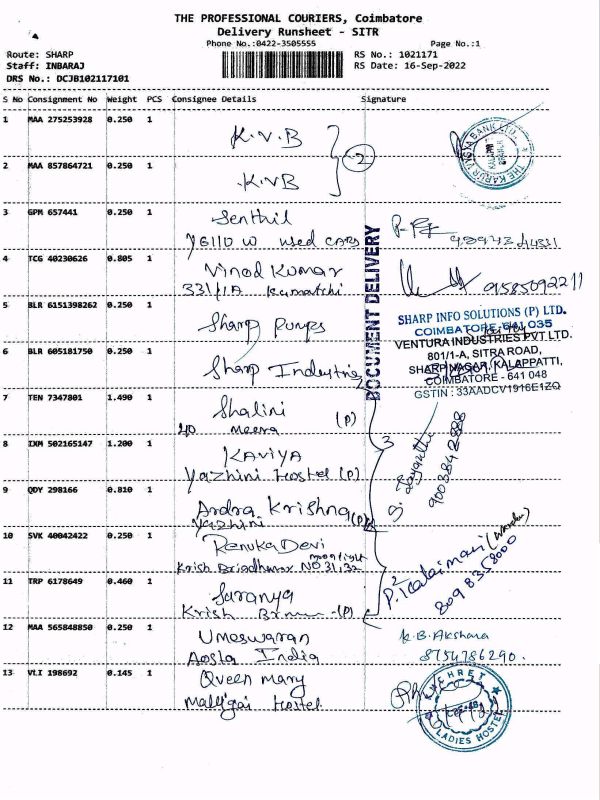 THE PROFESSIONAL COURIERS, Coimbatore
Delivery Runsheet - SITR
Phone No.:0422-3505555 Page No.:1
Route: SHARP RS No.: 1021171
Staff: INBARAJ RS Date: 16-Sep-2022
DRS No.: DCJB102117101
S No Consignment No Weight PCS Consignee Details Signature
1 MAA 275253928 0.250 1 K.V.B
2 MAA 857864721 0.250 1 K.V.B
THE KARUR VYSYA BANK LTD.
3 GPM 657441 0.250 1 Senthil
used cars
4 TCG 40230626 0.805 1 Vinod Kumar
331/1A Kamatchi 9585092211
DOCUMENT DELIVERY
5 BLR 6151398262 0.250 1 Sharp Pumps
SHARP INFO SOLUTIONS (P) LTD.
COIMBATORE-641 035
6 BLR 605181750 0.250 1 Sharp Industries
VENTURA INDUSTRIES PVT LTD.
801/1-A, SITRA ROAD,
SHARP NAGAR, KALAPPATTI,
COIMBATORE - 641 048
GSTIN : 33AADCV1916E1ZQ
7 TEN 7347801 1.490 1 Shalini
Meera (P)
8 IXM 502165147 1.200 1 Kaviya
Yazhini Hostel (P)
3
9003842888
9 QDY 298166 0.810 1 Ardra Krishna
Yazhini (P)
10 SVK 40042422 0.250 1 Renuka Devi
Krish NO 31,32
11 TRP 6178649 0.460 1 Saranya
Krish (P)
2
8098358000
12 MAA 565848850 0.250 1 Umeswaran
Aosta India
K.B. Akshara
8754786290.
13 VLI 198692 0.145 1 Queen Mary
Malligai Hostel
LADIES HOSTEL